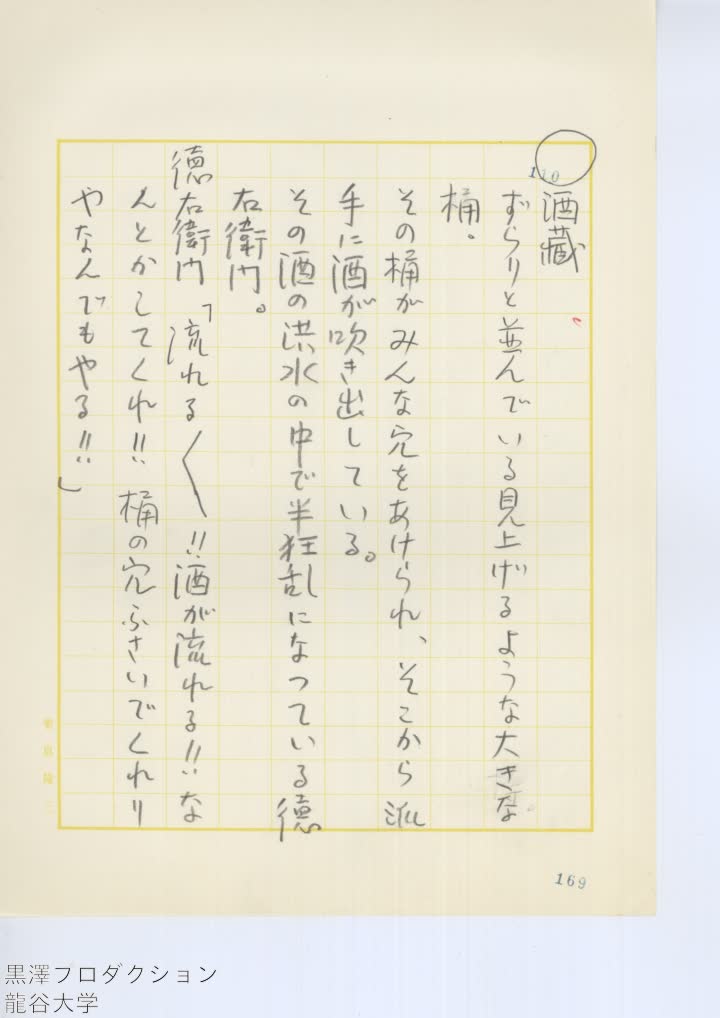 110
酒蔵
ずらりと並んでいる見上げるような大きな
桶。
その桶がみんな穴をあけられ、そこから派
手に酒が吹き出している。
その酒の洪水の中で半狂乱になつている徳
右衛門。
徳右衛門「流れる〱!!酒が流れる!!な
んとかしてくれ!!桶の穴ふさいでくれり
やなんでもやる!!」
169
黒澤プロダクション
龍谷大学